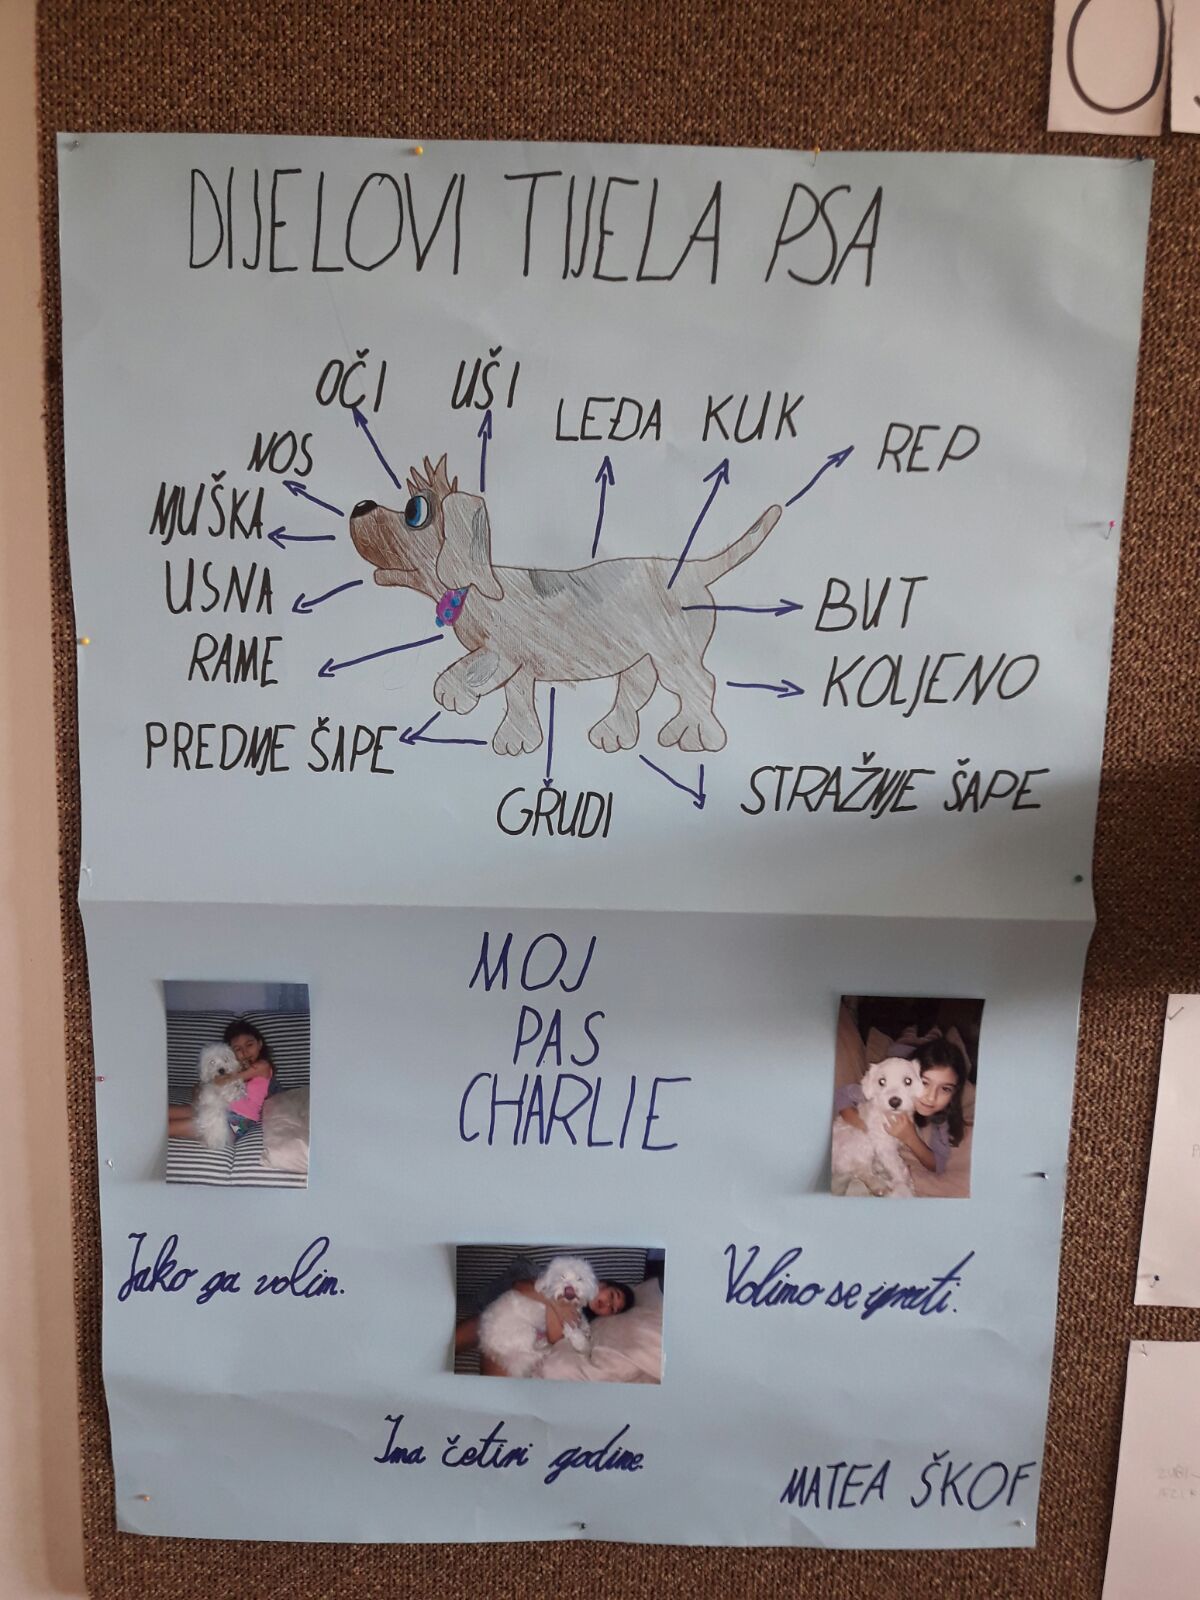 DIJELOVI TIJELA PSA
OČI
UŠI
LEĐA
KUK
REP
NOS
NJUŠKA
USNA
RAME
PREDNJE ŠAPE
GRUDI
BUT
KOLJENO
STRAŽNJE ŠAPE
MOJ
PAS
CHARLIE
Jako ga volim.
Volimo se igrati.
Ima četiri godine.
MATEA ŠKOF